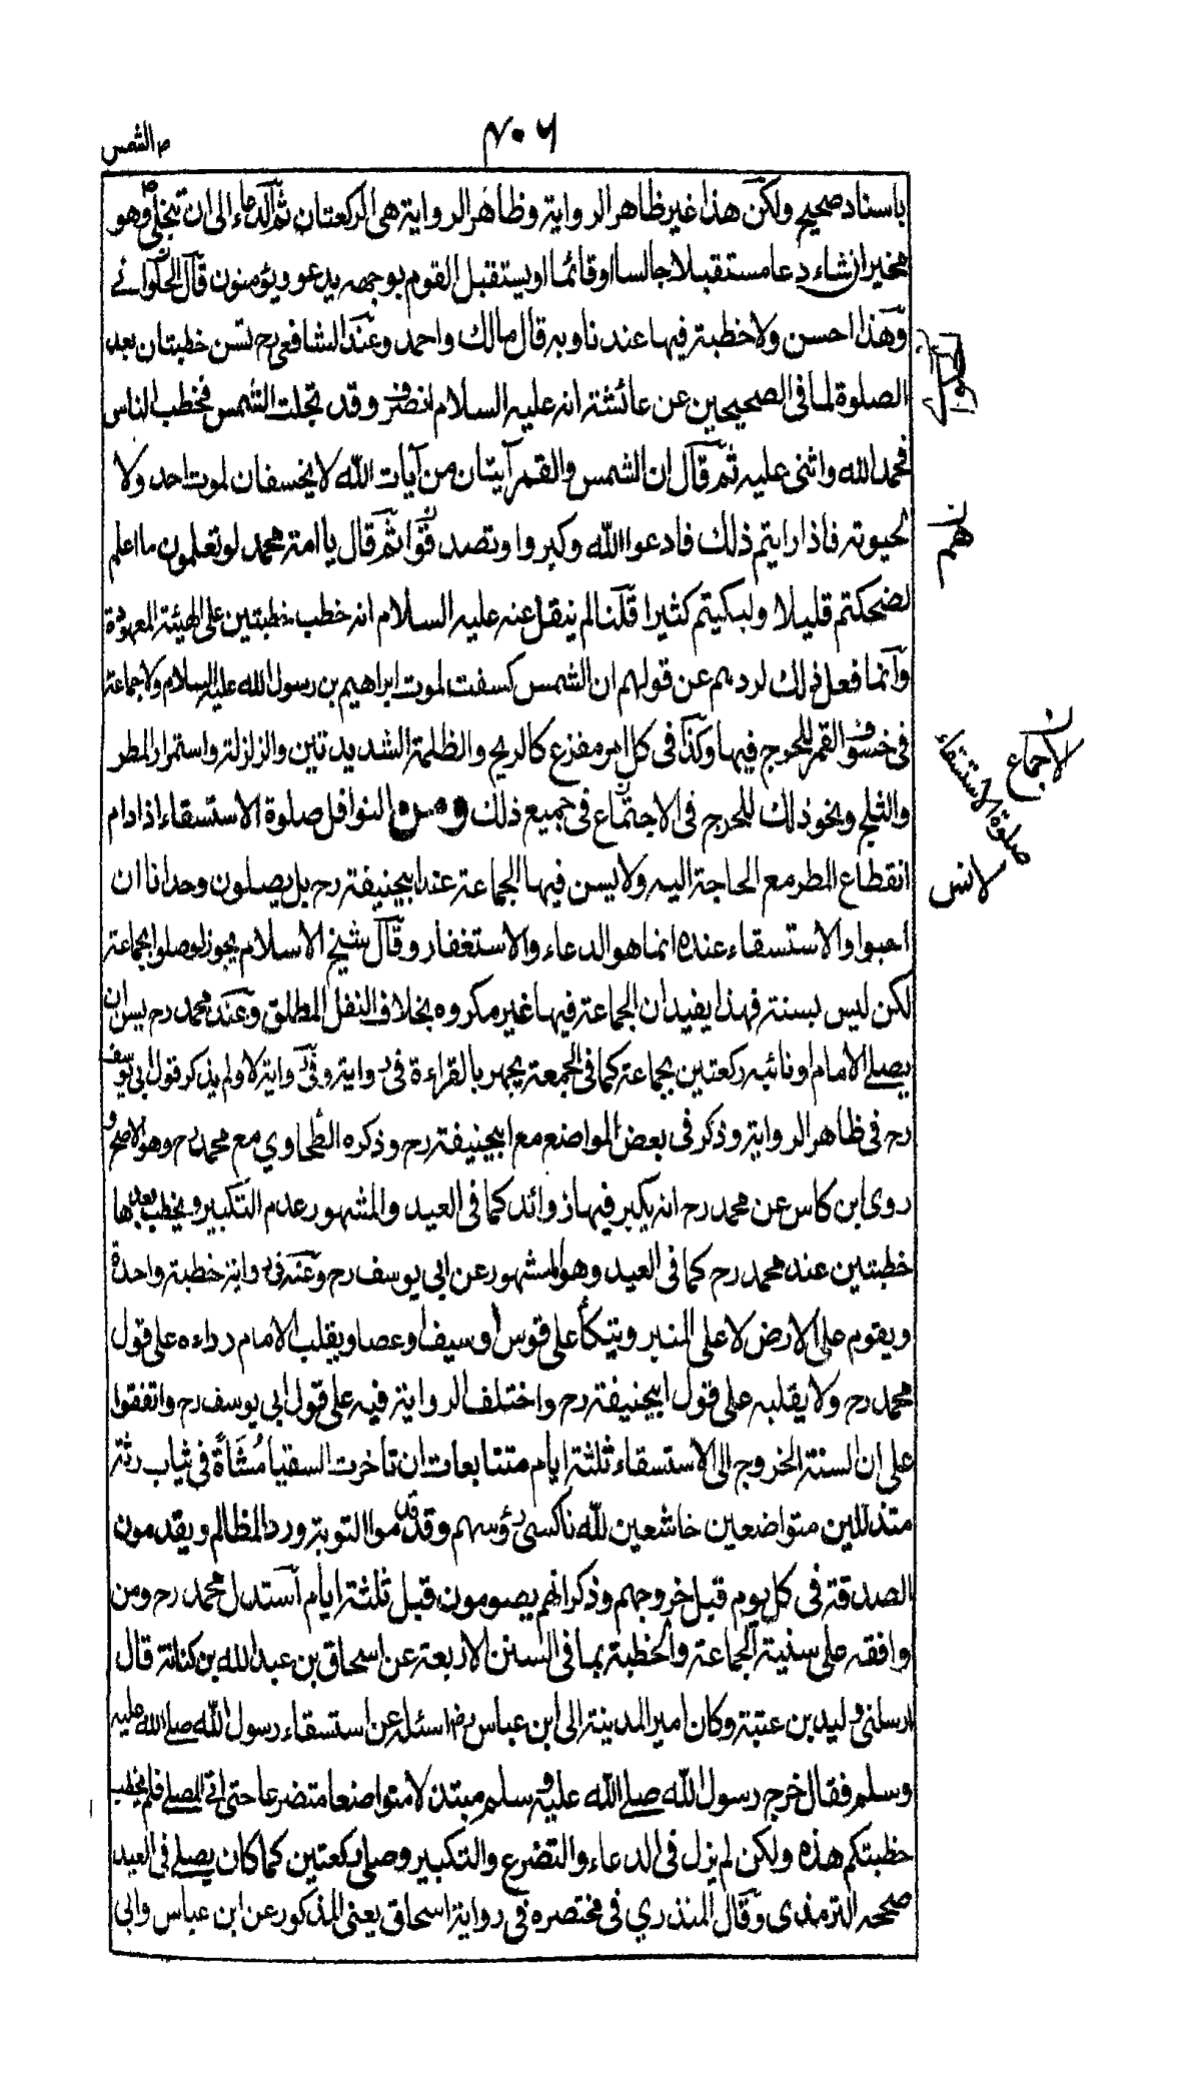 ٤٠٦
م الشمس
باسناد صحيح ولكن هذا غير ظاهر الرواية وظاهر الرواية هى الركعتان ثم الدعاء الى ان تنجلى وهو
مخير ان شاء دعا مستقبلا جالسا او قائما او يستقبل القوم بوجهه يدعو ويؤمنون قال الحلوائے
وهذا احسن ولا خطبة فيها عندنا وبه قال مالك واحمد وعند الشافعي رح تسن خطبتان بعد
الصلوة لما فى الصحيحين عن عائشة انه عليه السلام انصرف وقد تجلت الشمس فخطب الناس
فحمد الله واثنى عليه ثم قال ان الشمس والقمر آيتان من آيات الله لا يخسفان لموت احد ولا
لحيوته فاذا رايتم ذلك فادعوا الله وكبروا وتصدقوا ثم قال يا امة محمد لو تعلمون ما اعلم
لضحكتم قليلا ولبكيتم كثيرا قلنا لم ينقل عنه عليه السلام انه خطب خطبتين على الهيئة المعهودة
وانما فعل ذلك لردهم عن قولهم ان الشمس كسفت لموت ابراهيم بن رسول الله عليه السلام ولا جماعة
فى خسوف القمر للحرج فيها وكذا فى كل امر مفزع كالريح والظلمة الشديدتين والزلزلة واستمرار المطر
والثلج ونحو ذلك للحرج فى الاجتماع فى جميع ذلك ومن النوافل صلوة الاستسقاء اذا دام
انقطاع المطر مع الحاجة اليه ولا يسن فيها الجماعة عند ابيحنيفة رح بل يصلون وحدانا ان
احبوا والاستسقاء عنده انما هو الدعاء والاستغفار وقال شيخ الاسلام يجوز لو صلوا بجماعة
لكن ليس بسنة فهذا يفيد ان الجماعة فيها غير مكروه بخلاف النفل المطلق وعند محمد رح يسن ان
يصلے الامام او نائبه ركعتين بجماعة كما فى الجمعة يجهر بالقراءة فى رواية وفى رواية لا ولم يذكر قول ابى يوسف
رح فى ظاهر الرواية وذكر فى بعض المواضع مع ابيحنيفة رح وذكره الطحاوي مع محمد رح وهو الاصح و
روى ابن كاس عن محمد رح انه يكبر فيها زوائد كما فى العيد والمشهور عدم التكبير ويخطب بعدها
خطبتين عند محمد رح كما فى العيد وهو المشهور عن ابى يوسف رح وعنه فى رواية خطبة واحدة
ويقوم على الارض لا على المنبر ويتكأ على قوس او سيف او عصا ويقلب الامام رداءه على قول
محمد رح ولا يقلبه على قول ابيحنيفة رح واختلف الرواية فيه على قول ابى يوسف رح واتفقوا
على ان السنة الخروج الى الاستسقاء ثلثة ايام متتابعات ان تاخرت السقيا مُشَاةً فى ثياب رثة
متذللين متواضعين خاشعين لله ناكسى رؤسهم وقد قدموا التوبة ورد المظالم ويقدمون
الصدقة فى كل يوم قبل خروجهم وذكر انهم يصومون قبل ثلثة ايام استدل محمد رح ومن
وافقه على سنية الجماعة والخطبة بما فى السنن الاربعة عن اسحاق بن عبد الله بن كنانة قال
ارسلنى وليد بن عتبة وكان امير المدينة الى ابن عباس رض اسئله عن استسقاء رسول الله صلے الله عليه
وسلم فقال خرج رسول الله صلے الله عليه وسلم مبتذلا متواضعا متضرعا حتى اتى المصلے فلم يخطب
خطبتكم هذه ولكن لم يزل فى الدعاء والتضرع والتكبير وصلى ركعتين كما كان يصلے فى العيد
صححه الترمذى وقال المنذري فى مختصره فى رواية اسحاق يعنى المذكور عن ابن عباس وابى
هم ن
الاجماع ن
صلوة الاستسقاء